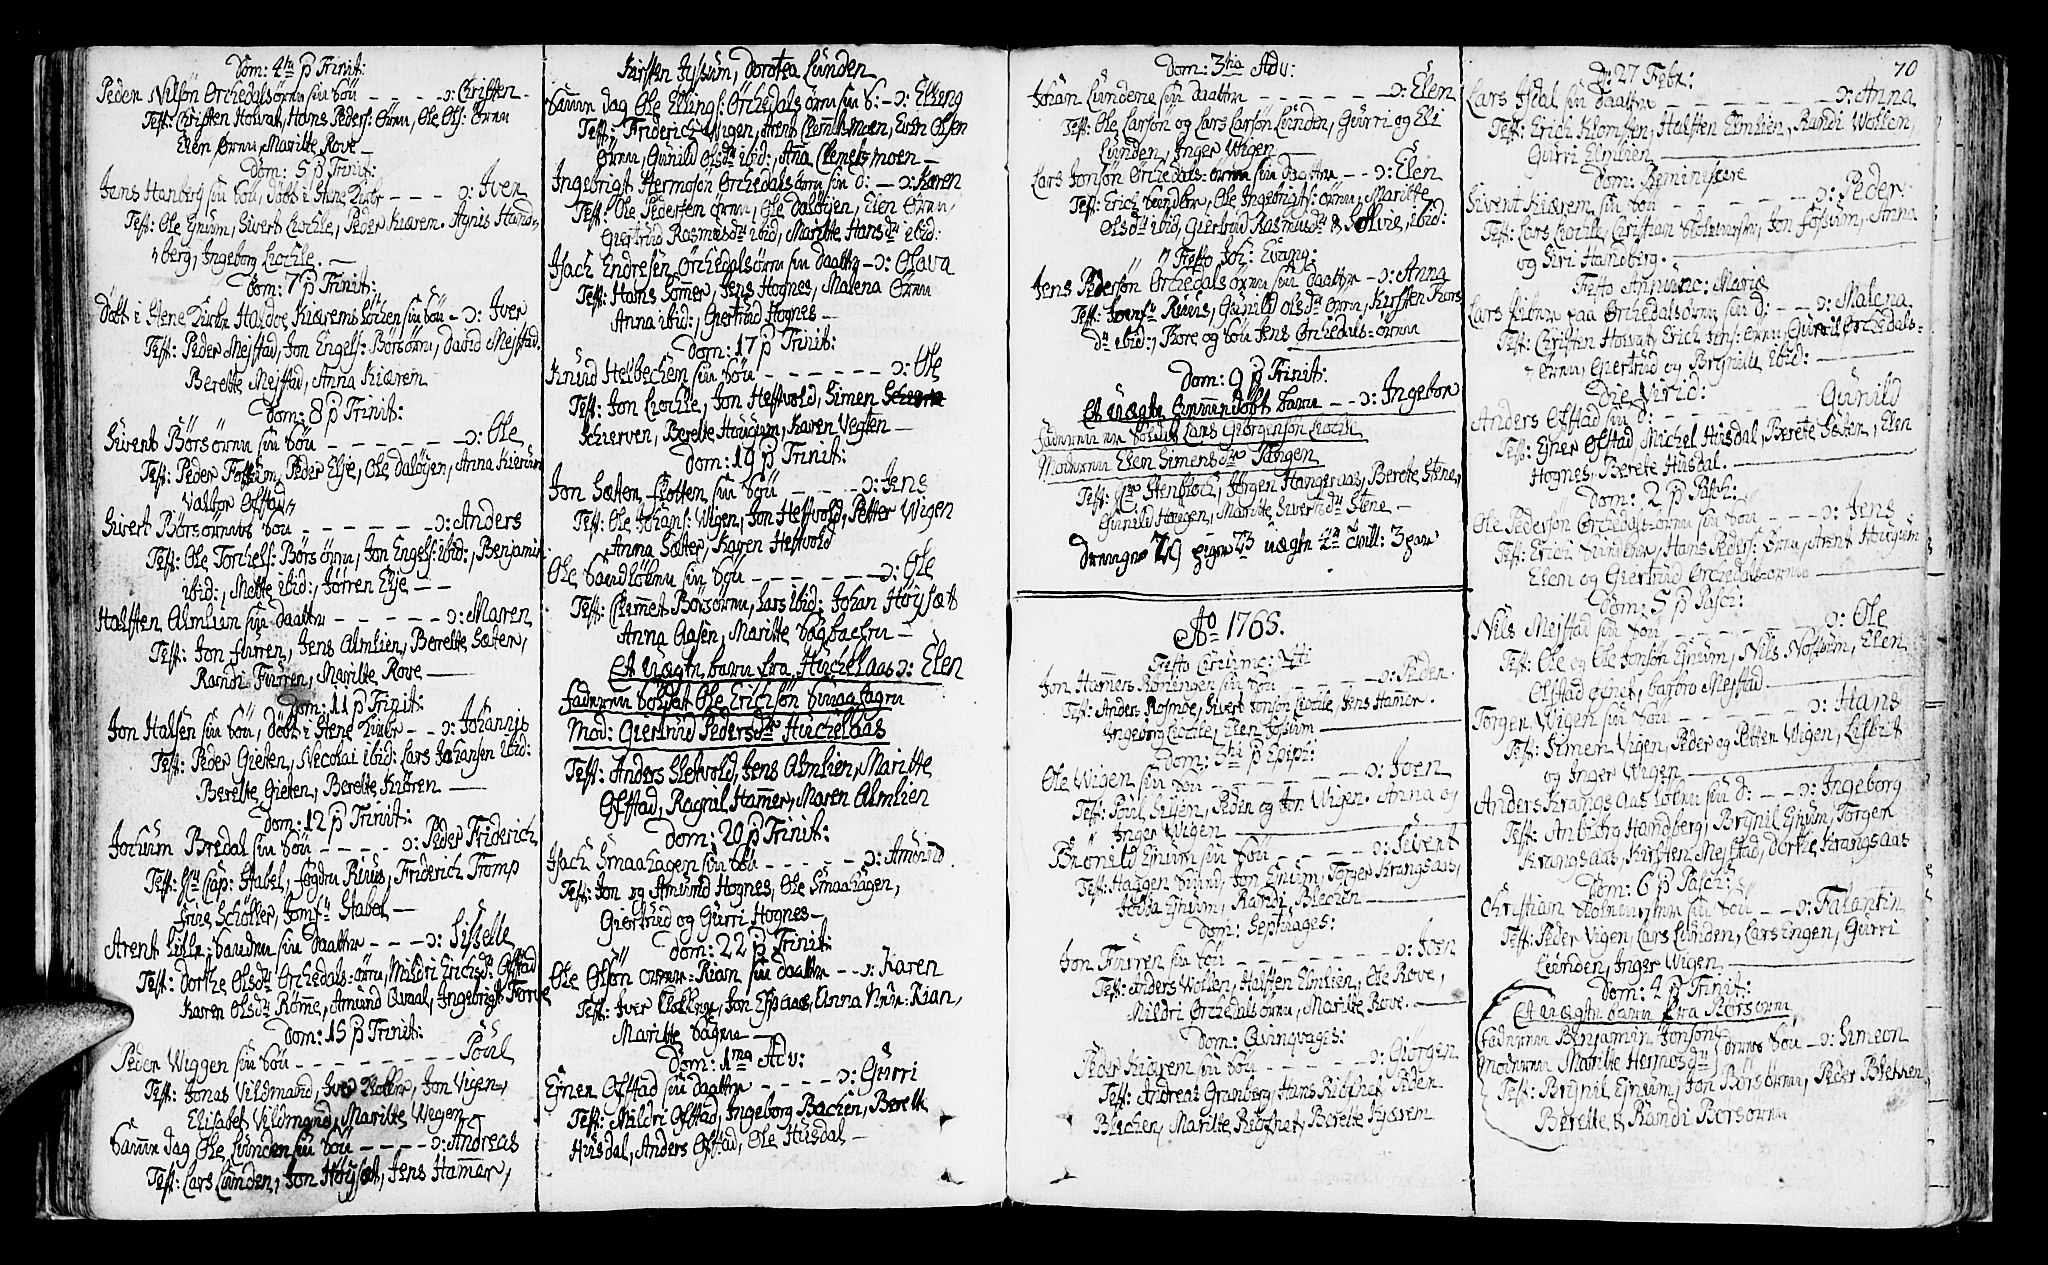 Dom: 4ta p Trinit:
Peder Nilsön Orchedalsörens sön - - - ɔ: Christen
Test: Christen Holvat, Hans Peders: Ören, Ole Ols: Ören
Elen Ören, Maritte Rove
Dom: 5 p Trinit:
Jens Hanberg sin Sön, döbt i Stene Kirke - - - ɔ: Iver
Test: Ole Gjnum, Sivert Lochle, Peder Kiærem. Agnis Hand-
berg, Ingeborg Lochle.
Dom: 7 p Trinit:
Döbt i Stene Kirke Haldoe Kiærems sin Sön - ɔ: Iver
Test: Peder Mejstad, Jon Engels: Börsören, David Mejstad.
Berette Mejstad, Anna Kiærem
Dom: 8 p Trinit:
Sivert Börsören sin Sön - - - ɔ: Ole
Test: Peder Fossum, Peder Elje, Ole Dalöijen, Anna Kierem
Valbor Ofstad
Sivert Börsörens Sön - - - ɔ: Anders
Test: Ole Torchels: Börsören, Jon Engels: ibid:, Benjamin
ibid:, Mette ibid:, Jörren Elje
Halsten Almlien sin Daatter - - - ɔ: Maren
Test: Jon Furren, Jens Almlien, Berette Sæter,
Randi Furren, Maritte Rove
Dom: 11 p Trinit:
Jon Halsen sin Sön, Döbt i Stene Kirke - - ɔ: Johannis
Test: Peder Gieten, Necolai ibid: Lars Johansen ibid:
Berette Gieten, Berette Kiören
Dom: 12 p Trinit:
Jochum Bredal sin Sön - - - ɔ: Peder Friderich
Test: Hr Cap: Stabel, Fogden Rivis, Friderich Tromp
Frue Schöller, Jomfr Stabel
Arent Lille-Sanden sin Daatter - - - ɔ: Sisselle
Test: Dorthe Olsdr Orchedals: ören, Mildri Erichsdr Ofstad
Karen Olsdr Romme, Amund Qvaal, Ingebrigt Torve
Dom: 15 p Trinit:
Peder Wiggen sin Sön - - - Poul
Test: Jonas Vildmand, Iver Koller, Jon Vigen,
Elisabet Vildmand, Maritte Wegen
Samme dag Ole Lunden sin Sön - - - ɔ: Andreas
Test: Lars Lunden, Jon Höysæt, Jens Hamer,
Kirsten Jyssum, Dorotea Lunden
Samme dag Ole Ellings: Orchedalsören sin S: - ɔ: Elling
Test: Friderich Wigen, Arent Clemetsmoen, Even Olsen
Ören, Gunild Olsdr ibid:, Anna Clemetsmoen
Ingebrigt Hermosön Orchedalsören sin D: - ɔ: Karen
Test: Ole Pedersen Ören, Ole Dalöijen, Elen Ören,
Giertrud Rasmusdr ibid, Maritte Hansdr ibid:
Isach Endresen Orchedalsören sin Daatter - ɔ: Olava
Test: Hans Somer, Jens Hognes, Malena Ören
Anna ibid:, Giertrud Hognes
Dom: 17 p Trinit:
Knud Helbechem sin Sön - - - ɔ: Ole
Test: Jon Lochle, Jon Heftvold, Simen
Schierven, Berette Hougum, Karen Veglen
Dom: 19 p Trinit:
Jon Sæten, sin Sön - - - ɔ: Jens
Test: Ole Johans: Wigen, Jon Heftvold, Petter Wigen
Anna Sæter, Karen Heftvold
Ole Sandlökken sin Sön - - - ɔ: Ole
Test: Clemet Börsören, Lars ibid: Johan Höysæt
Anna Aasen, Maritte Bagbachen
Et uægte barn fra Huchelaas ɔ: Elen
Faderen Soldat Ole Erichsön
Mod: Giertrud Pedersdr Huchelaas
Test: Anders Sletvold, Jens Almlien, Maritte
Ofstad, Ragnil Hamer, Maren Almlien
Dom: 20 p Trinit:
Isach Smaahagen sin Sön - - - ɔ: Amund.
Test: Jon og Amund Hognes, Ole Smaahagen,
Giertrud og Gurri Hognes
Dom: 22 p Trinit:
Ole Olsön Rian sin Daatter - - ɔ: Karen
Test: Iver Jon Espaas, Anna Rian,
Maritte
Dom: 1ma Adv:
Ejner Ofstad sin Daatter - - - ɔ: Gurri
Test: Mildri Ofstad, Ingeborg Bachen, Berett
Husdal, Anders Ofstad, Ole Husdal
Dom: 3tia Adv:
Johan Lundene sin Daatter - - - ɔ: Elen
Test: Ole Larsön og Lars Larsön Lunden, Gurri og Eli
Lunden, Inger Wigen
Lars Jonsön Orchedals-ören sin Daatter - - ɔ: Elen
Test: Erich Ole Ingebrigts: ören, Maritte
Olsdr ibid, Giertrud Rasmusdr & Sølvie, ibid:
Festo Joh: Evang:
Jens Pedersön Orchedalsören sin Daatter - ɔ: Anna
Test: Jomfr Rivis, Gunild Olsdr Ören, Kirsten Thors
dr ibid:, Thore og Jens Orchedals-ören
Dom: 9 p Trinit:
Et uægte hiemmedöbt barn - - ɔ: Ingebor
Faderen er Soldat Lars Giörgensön Lochle
Moderen Elen Simensdr Tangen
Test: Hr Stenbloch, Jörgen Hangeraas, Berete Stene,
Gunild Haugen, Maritte Sivertsdr Stene
Drenge 29 piger 23 uægte 4re tvill: 3 par
Ao 1765.
Festo Circumc: Xsti
Jon Hamers Rönningen sin Sön - - - ɔ: Peder
Test: Anders Rosmoe, Sivert Jonsön Lochle, Jens Hamer.
Ingeborg Lochle, Elen Fossum
Dom: 3tia p Epiph:
Ole Wigen sin Sön - - - ɔ: Joen
Test: Poul Siljen, Peder og Jon Wigen. Anna og
Inger Wigen
Brönild Gjnum sin Sön - - - ɔ: Sivert
Test: Haagen Jon Gjnum, Torger Krangsaas,
Gjnum, Randi Blechen
Dom: Septuages:
Jon Furren sin Sön - - - ɔ: Joen
Test: Anders Wollen, Halsten Elmlien, Ole Rove,
Mildri Orchedalsören, Maritte Rove.
Dom: Qvinqvages:
Peder Kiærem sin Sön - - - ɔ: Giörgen
Test: Andreas Granberg, Hans Peder
Blechen, Maritte Berette Kjærem
70
D: 27 Febr:
Lars Isdal sin Daatter - - - ɔ: Anna
Test: Erich Klomsten, Halsten Elmlien, Randi Wollen,
Gurri Elmlien
Dom: Reminiscere
Sivert Kiærem sin Sön - - - ɔ: Peder
Test: Lars Lochle, Christian Jon Fossum, Anna
og Siri Handberg.
Festo Annunc: Mariæ
Lars paa Orchedalsören sin D: - - ɔ: Malena
Test: Christen Holvat, Erich Jens: Ören, Gunnil Orchedals-
ören, Giertrud og Brynild ibid:
Die Virid:
Anders Ofstad sin D: - - - Gunild
Test: Ejner Ofstad, Michel Husdal, Berete Sæten, Elen
Hognes, Berete Husdal.
Dom: 2 p Pasch:
Ole Pedersön Orchedals-ören sin Sön - - - ɔ: Jens
Test: Erich Hans Peders: Ören, Arent Hougum
Elen og Giertrud Orchedals-ören
Dom: 5 p Pasch:
Nils Mejstad sin Sön - - - ɔ: Ole
Test: Ole og Ole Jonsön Gjnum, Nils Nossum, Elen
Ofstad Barbro Mejstad
Torger Wigen sin Sön - - - ɔ: Hans
Test: Simen Vigen, Peder og Petter Wigen, Lisbet
og Inger Wigen
Anders Krangsaas sin D: - - ɔ: Ingeborg
Test: Anbiörg Handberg, Brynil Gjnum, Torger
Krangsaas, Kirsten Mejstad, Dorthe Krangsaas
Dom: 6 p Pasch:
Christian sin Sön - - ɔ: Falantin
Test: Peder Vigen, Lars Lunden, Lars Engen, Gurri
Lunden, Inger Wigen
Dom: 4 p Trinit:
Et uægte barn fra Börsören
Faderen Benjamin Jonsön
Moderen Maritte Hermosdr deres Sön - ɔ: Simeon
Test: Brynil Gjnum, Jon Börsören, Peder Blechen,
Berette & Randi Börsören